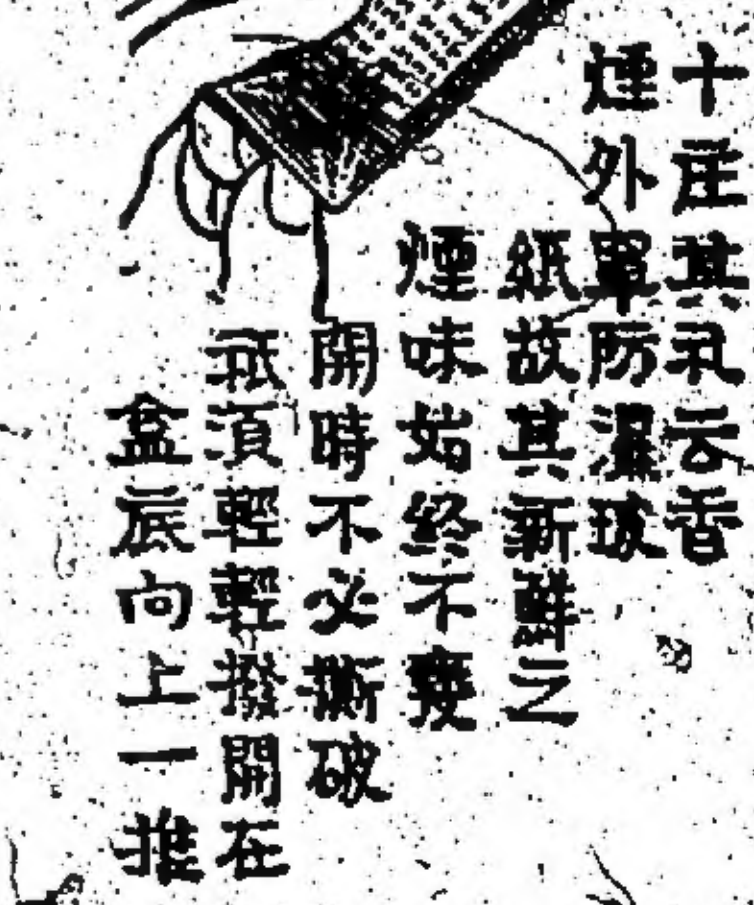 十其云香
煙外罩防濕玻
紙故其新鮮之
煙味始終不變
開時不必撕破
祇須輕輕撥開在
盒底向上一推